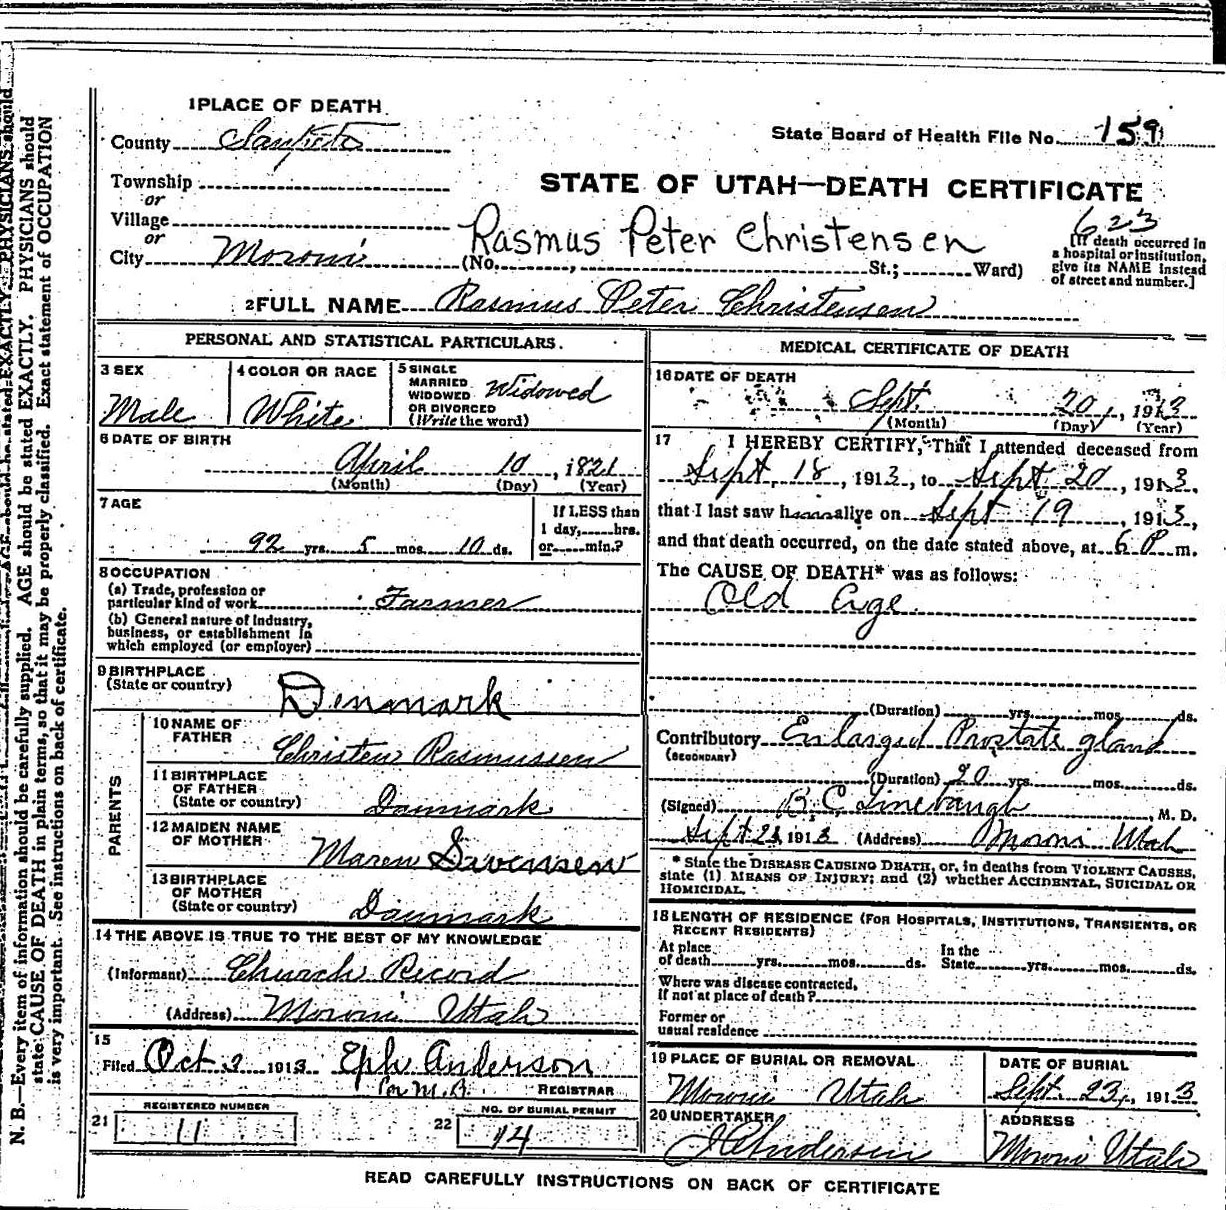 1 PLACE OF DEATH
County Sanpete
State Board of Health File No. 159
Township
or
Village
or
City Moroni
STATE OF UTAH—DEATH CERTIFICATE
623
Rasmus Peter Christensen
(No. , St.; Ward)
[If death occurred in
a hospital or institution,
give its NAME instead
of street and number.]
2 FULL NAME Rasmus Peter Christensen
PERSONAL AND STATISTICAL PARTICULARS.
3 SEX
Male
4 COLOR OR RACE
White
5 SINGLE
MARRIED
WIDOWED
OR DIVORCED
(Write the word)
Widowed
6 DATE OF BIRTH
April 10, 1821
(Month) (Day) (Year)
7 AGE
92 yrs. 5 mos. 10 ds.
If LESS than
1 day, hrs.
or min.?
8 OCCUPATION
(a) Trade, profession or
particular kind of work Farmer
(b) General nature of Industry,
business, or establishment in
which employed (or employer)
9 BIRTHPLACE
(State or country)
Denmark
PARENTS
10 NAME OF
FATHER
Christen Rasmussen
11 BIRTHPLACE
OF FATHER
(State or country)
Danmark
12 MAIDEN NAME
OF MOTHER
Maren
13 BIRTHPLACE
OF MOTHER
(State or country)
Danmark
14 THE ABOVE IS TRUE TO THE BEST OF MY KNOWLEDGE
(Informant) Church Record
(Address) Moroni Utah
15
Filed Oct 3 1913 Eph Anderson
Per M.A. REGISTRAR
21 REGISTERED NUMBER
11
22 NO. OF BURIAL PERMIT
14
MEDICAL CERTIFICATE OF DEATH
16 DATE OF DEATH
Sept. 20, 1913
(Month) (Day) (Year)
17 I HEREBY CERTIFY, That I attended deceased from
Sept. 18, 1913, to Sept 20, 1913,
that I last saw h alive on Sept 19, 1913,
and that death occurred, on the date stated above, at 6 P. m.
The CAUSE OF DEATH* was as follows:
Old Age
(Duration) yrs. mos. ds.
Contributory Enlarged Prostate gland
(SECONDARY)
(Duration) 20 yrs. mos. ds.
(Signed) B. C. Linebaugh, M. D.
Sept 21 1913 (Address) Moroni Utah
* State the DISEASE CAUSING DEATH, or, in deaths from VIOLENT CAUSES,
state (1) MEANS OF INJURY; and (2) whether ACCIDENTAL, SUICIDAL OR
HOMICIDAL.
18 LENGTH OF RESIDENCE (FOR HOSPITALS, INSTITUTIONS, TRANSIENTS, OR
RECENT RESIDENTS)
At place
of death yrs. mos. ds.
In the
State yrs. mos. ds.
Where was disease contracted,
if not at place of death?
Former or
usual residence
19 PLACE OF BURIAL OR REMOVAL
Moroni Utah
DATE OF BURIAL
Sept. 23, 1913
20 UNDERTAKER
Anderson
ADDRESS
Moroni Utah
READ CAREFULLY INSTRUCTIONS ON BACK OF CERTIFICATE
N. B.—Every item of information should be carefully supplied. AGE should be stated EXACTLY. PHYSICIANS should
state CAUSE OF DEATH in plain terms, so that it may be properly classified. Exact statement of OCCUPATION
is very important. See instructions on back of certificate.